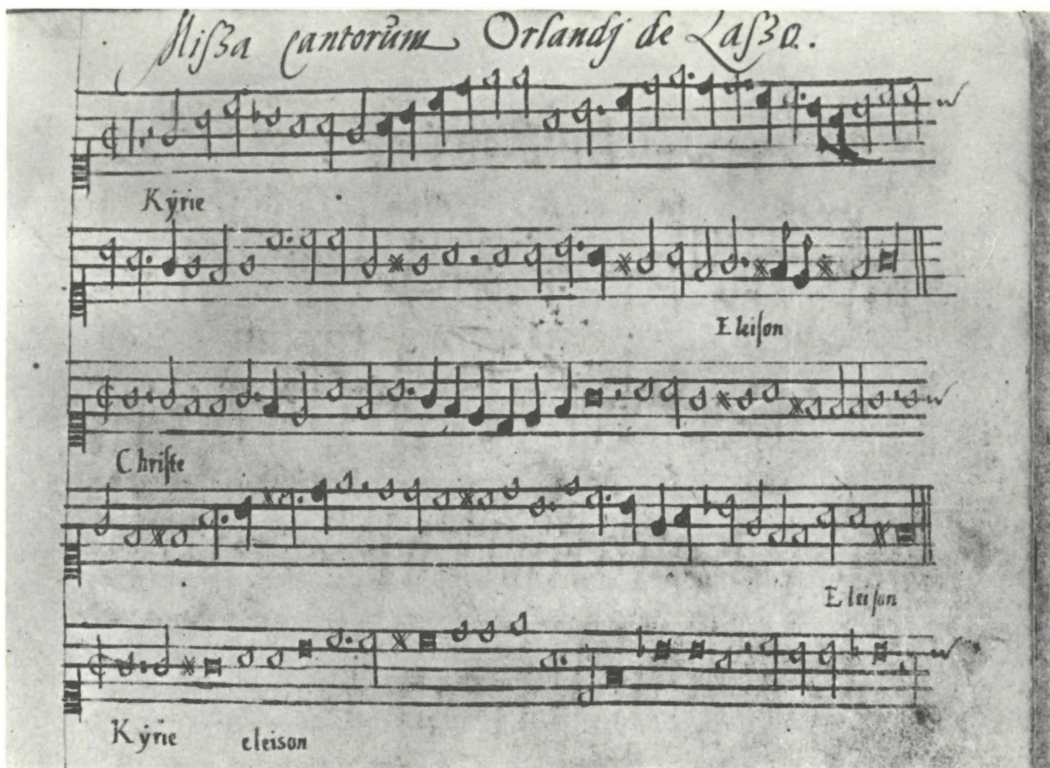 Missa cantorum Orlandj de Lasso.
Kÿrie
Eleison
Christe
Eleison
Kÿrie eleison